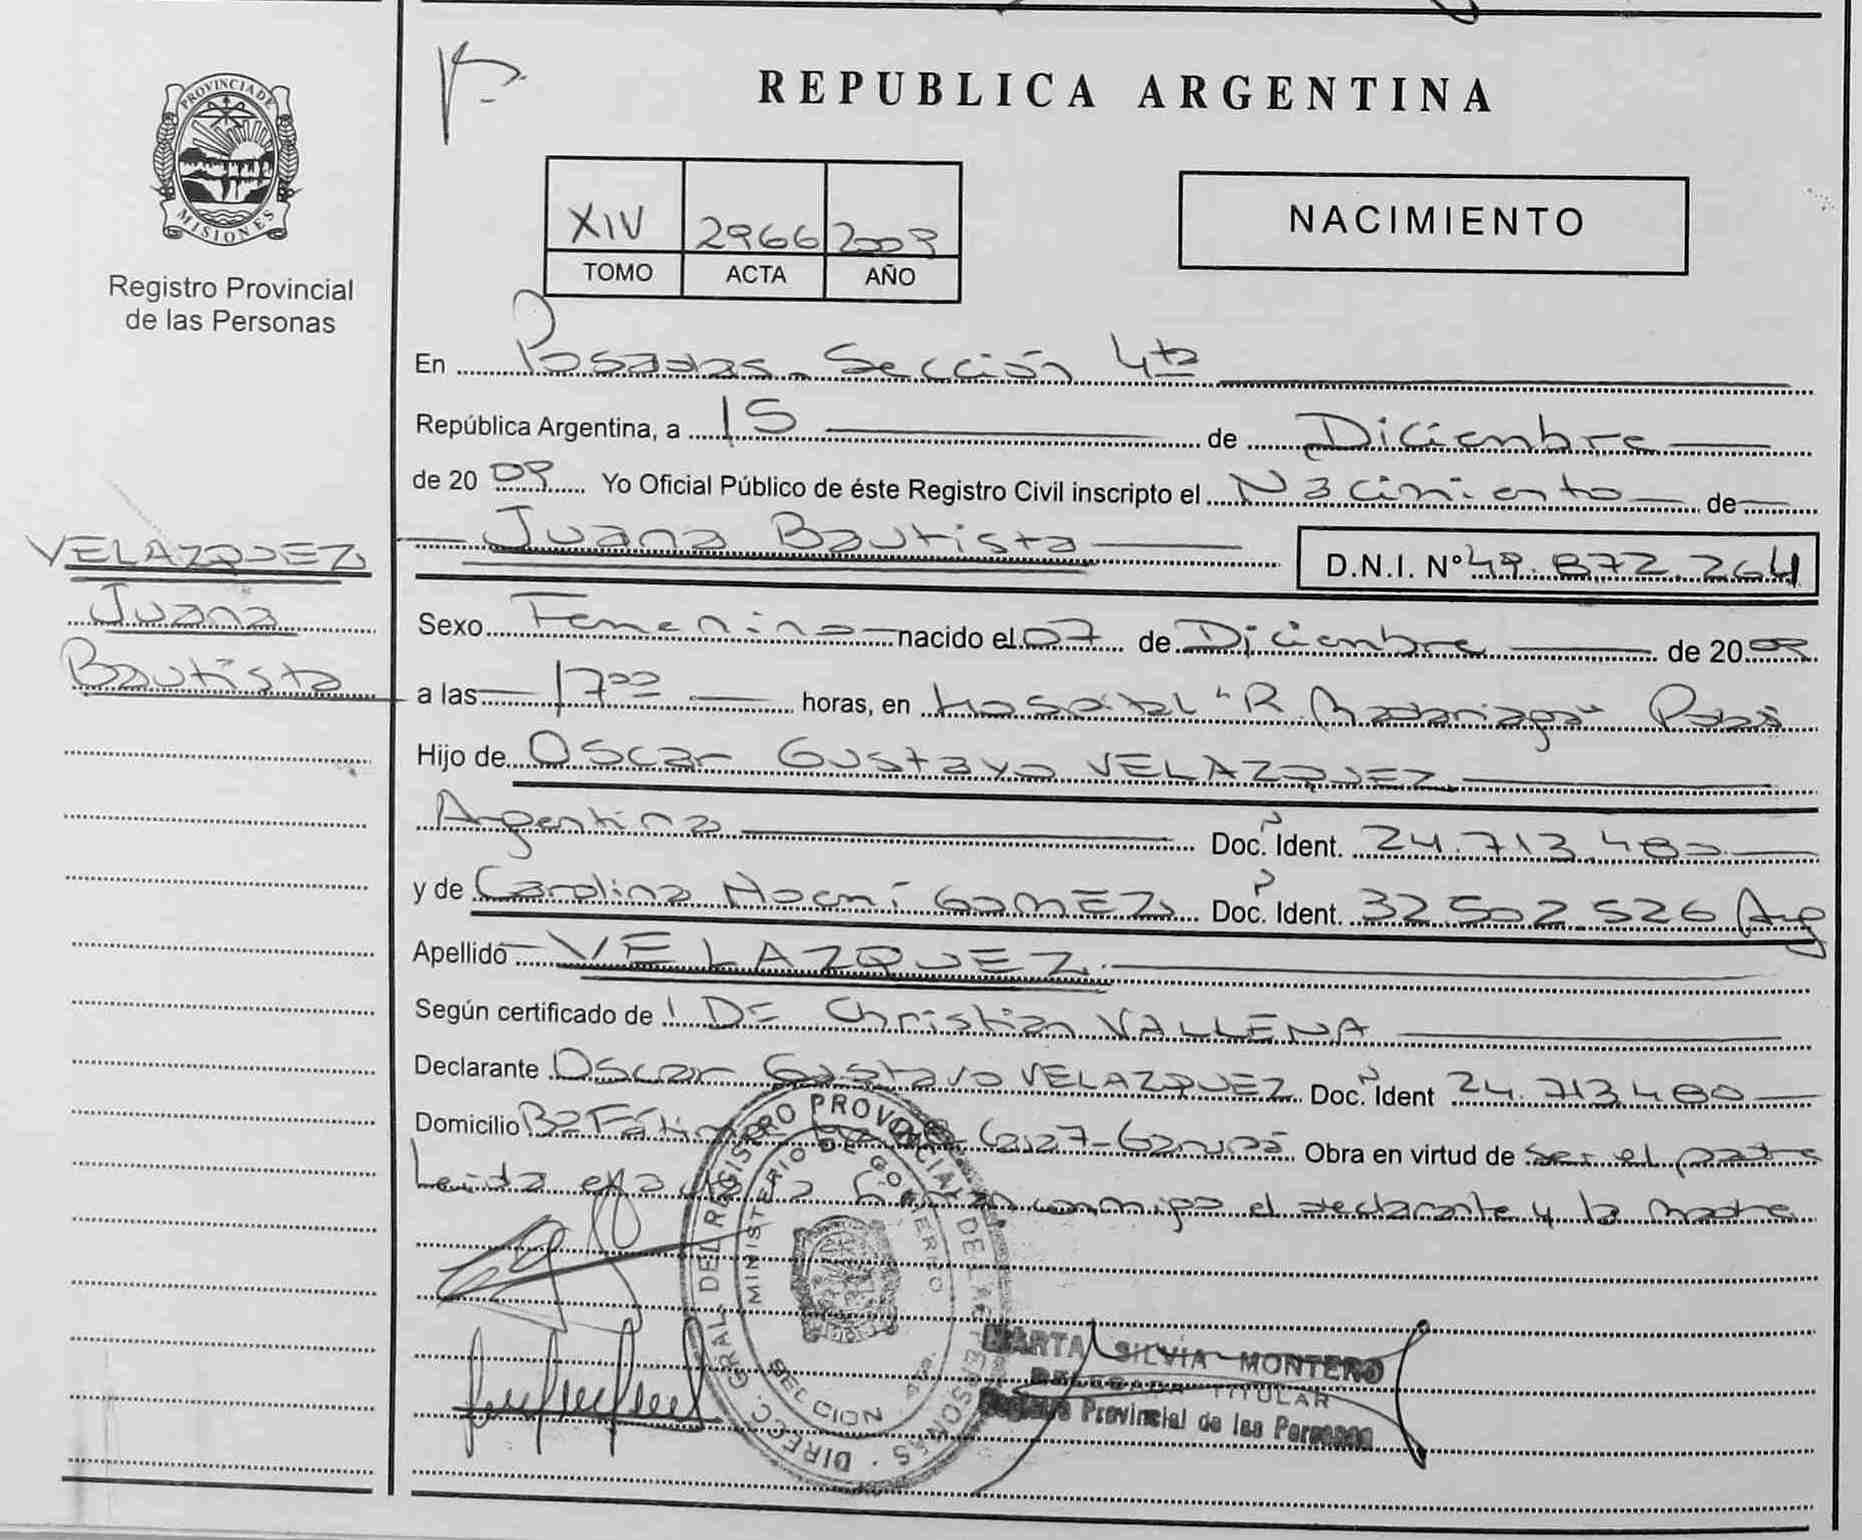 PROVINCIA DE
MISIONES
Registro Provincial
de las Personas
REPUBLICA ARGENTINA
XIV 2966 2009
TOMO ACTA AÑO
NACIMIENTO
En Posadas - Sección 4ta
República Argentina, a 15 de Diciembre
de 2009 Yo Oficial Público de éste Registro Civil inscripto el Nacimiento de
Juana Bautista D.N.I. Nº 49.872.264
VELAZQUEZ
Juana
Bautista
Sexo Femenino nacido el 07 de Diciembre de 2009
a las 1700 horas, en Hospital "R. Madariaga"
Hijo de Oscar Gustavo VELAZQUEZ
Argentina Doc. Ident. 24.713.480
y de Carolina Noemí GOMEZ Doc. Ident. 32.502.526 Arg
Apellido VELAZQUEZ
Según certificado de DE Christian VALLENA
Declarante Oscar Gustavo VELAZQUEZ Doc. Ident 24.713.480
Domicilio Bº Fátima Obra en virtud de ser el padre
Leída el acta firman conmigo el declarante y la madre
DIRECC. GRAL. DEL REGISTRO PROVINCIAL DE LAS PERSONAS
MINISTERIO DE GOBIERNO
MARTA SILVIA MONTERO
DELEGADA TITULAR
Registro Provincial de las Personas